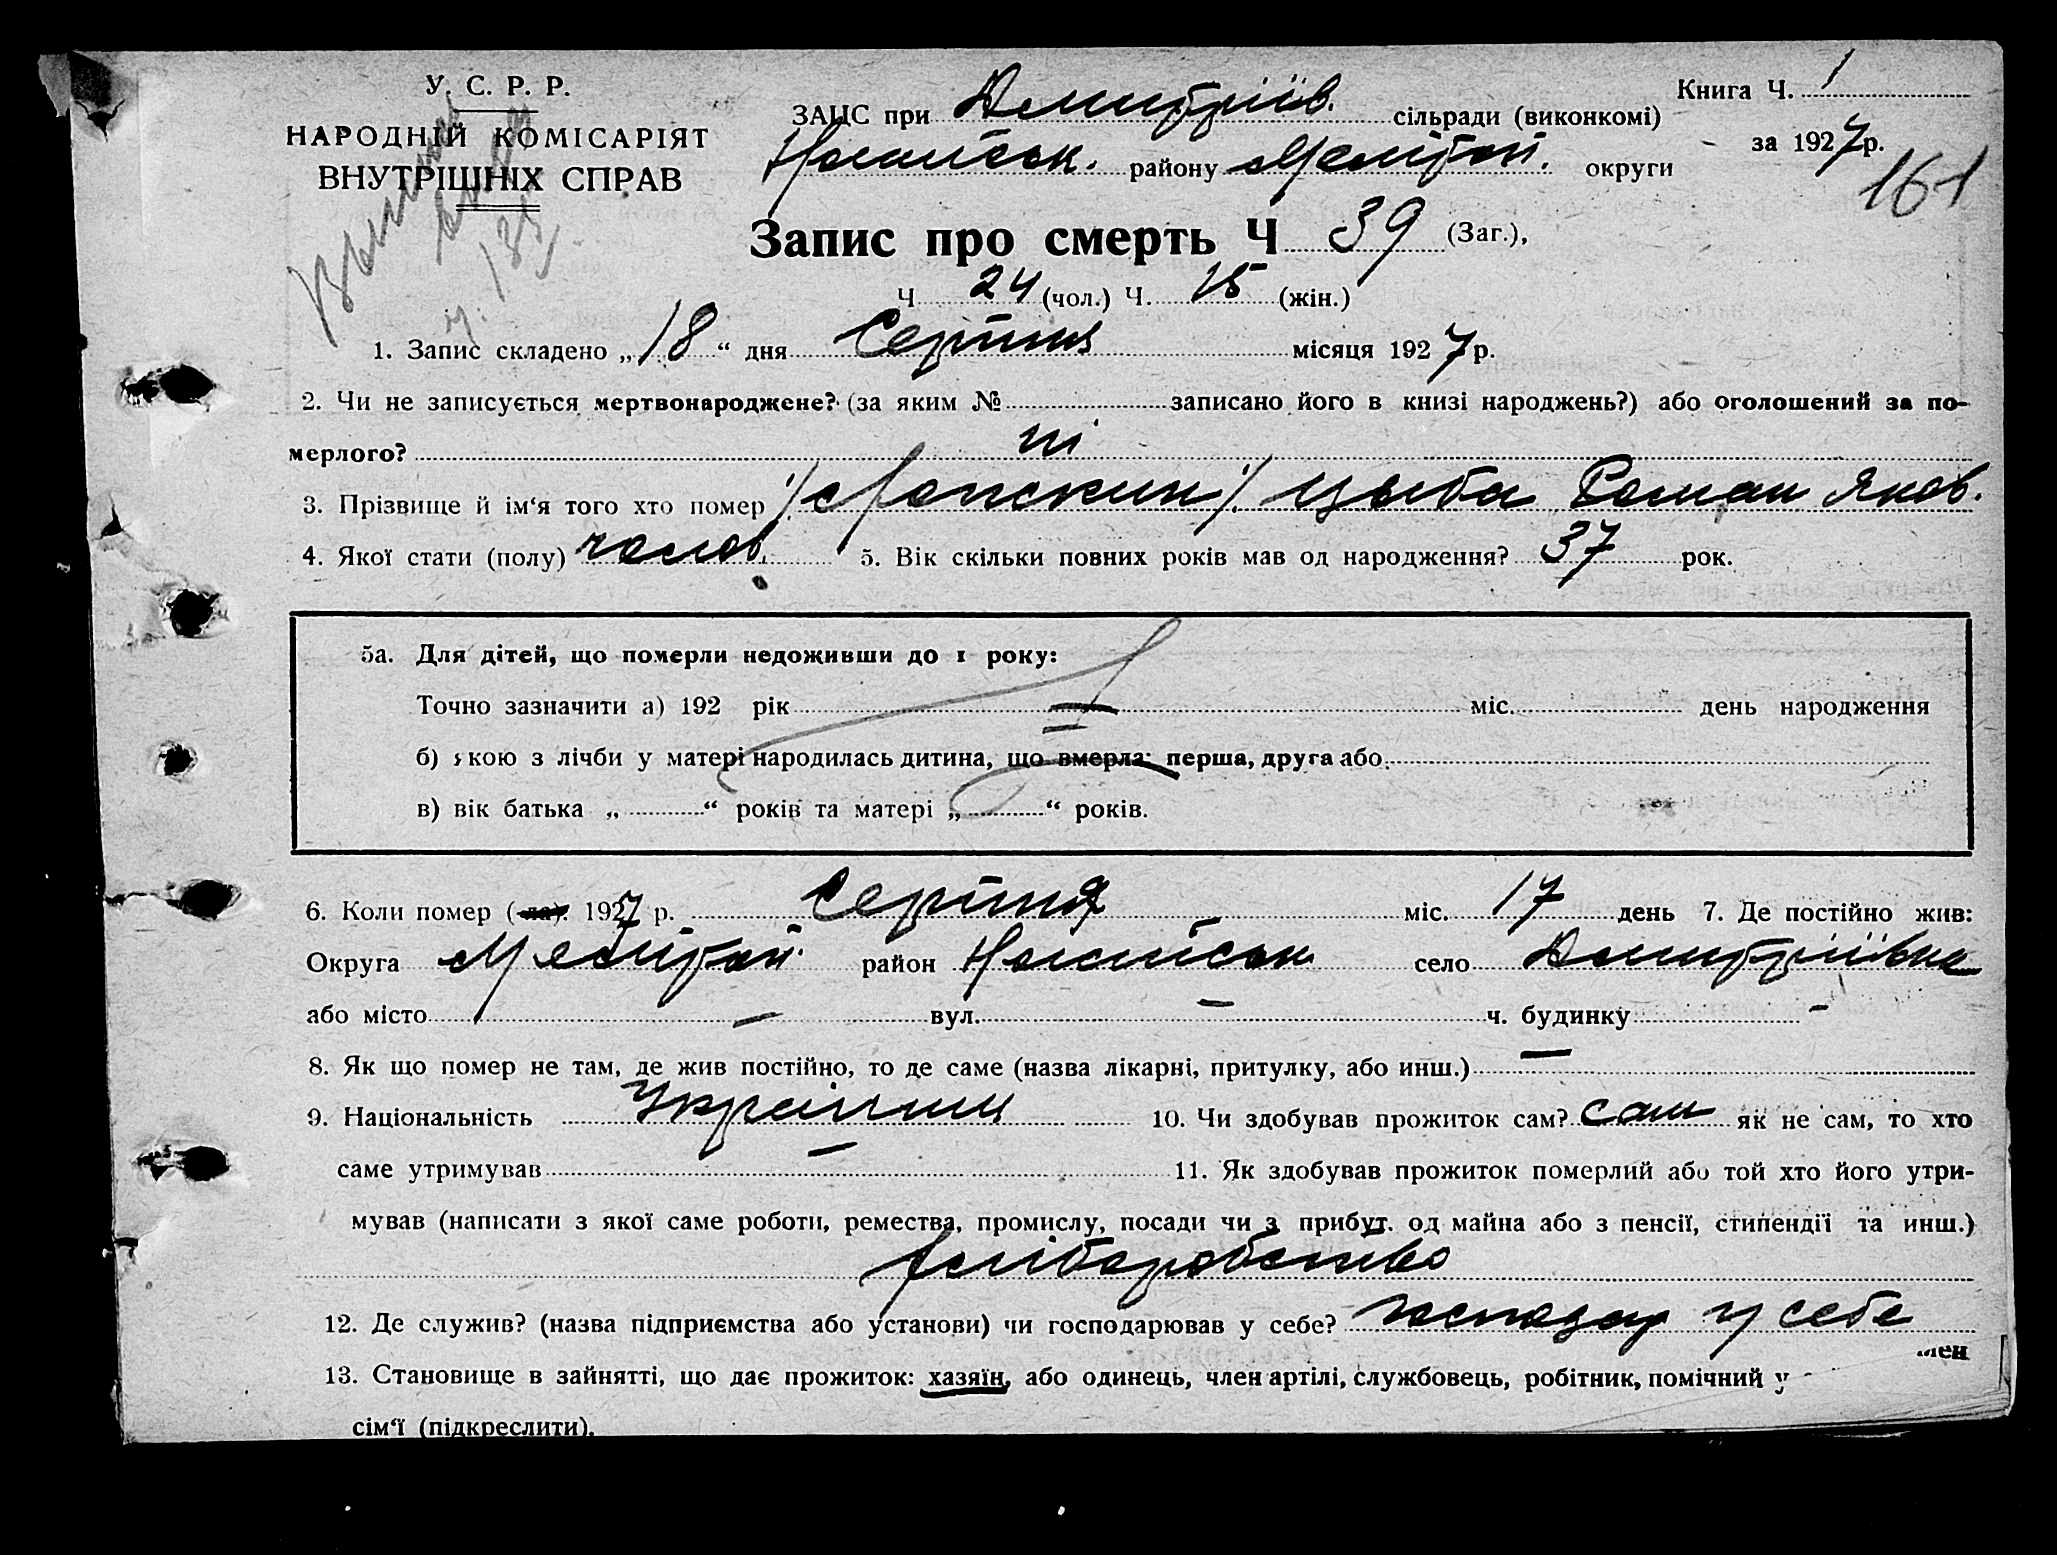 У. С. Р. Р.
НАРОДНІЙ КОМІСАРІЯТ
ВНУТРІШНІХ СПРАВ
Книга Ч. 1
ЗАЦС при Дмитріїв. сільради (виконкомі)
за 1927 р.
Ногайськ. району Мелітоп. округи
161
Запис про смерть Ч 39 (Заг.),
Ч 24 (чол.) Ч. 15 (жін.)
1. Запис складено „18“ дня Серпня місяця 1927 р.
2. Чи не записується мертвонароджене? (за яким № записано його в книзі народжень?) або оголошений за по-
мерлого? ні
3. Прізвище й ім‘я того хто помер Цыба Роман Яков.
4. Якої стати (полу) чолов. 5. Вік скільки повних років мав од народження? 37 рок.
5а. Для дітей, що померли недоживши до 1 року:
Точно зазначити а) 192 рік — міс. день народження
б) якою з лічби у матері народилась дитина, що вмерла: перша, друга або
в) вік батька „ “ років та матері „ “ років.
6. Коли помер (ла). 1927 р. Серпня міс. 17 день 7. Де постійно жив:
Округа Мелітоп. район Ногайськ село Дмитріївка
або місто — вул. — ч. будинку —
8. Як що помер не там, де жив постійно, то де саме (назва лікарні, притулку, або инш.) —
9. Національність Українец 10. Чи здобував прожиток сам? сам як не сам, то хто
саме утримував — 11. Як здобував прожиток померлий або той хто його утри-
мував (написати з якої саме роботи, ремества, промислу, посади чи з прибут. од майна або з пенсії, стипендії та инш.)
хліборобство
12. Де служив? (назва підприємства або установи) чи господарював у себе? господар у себе
13. Становище в зайнятті, що дає прожиток: хазяїн, або одинець, член артілі, службовець, робітник, помічний у
сім‘ї (підкреслити).